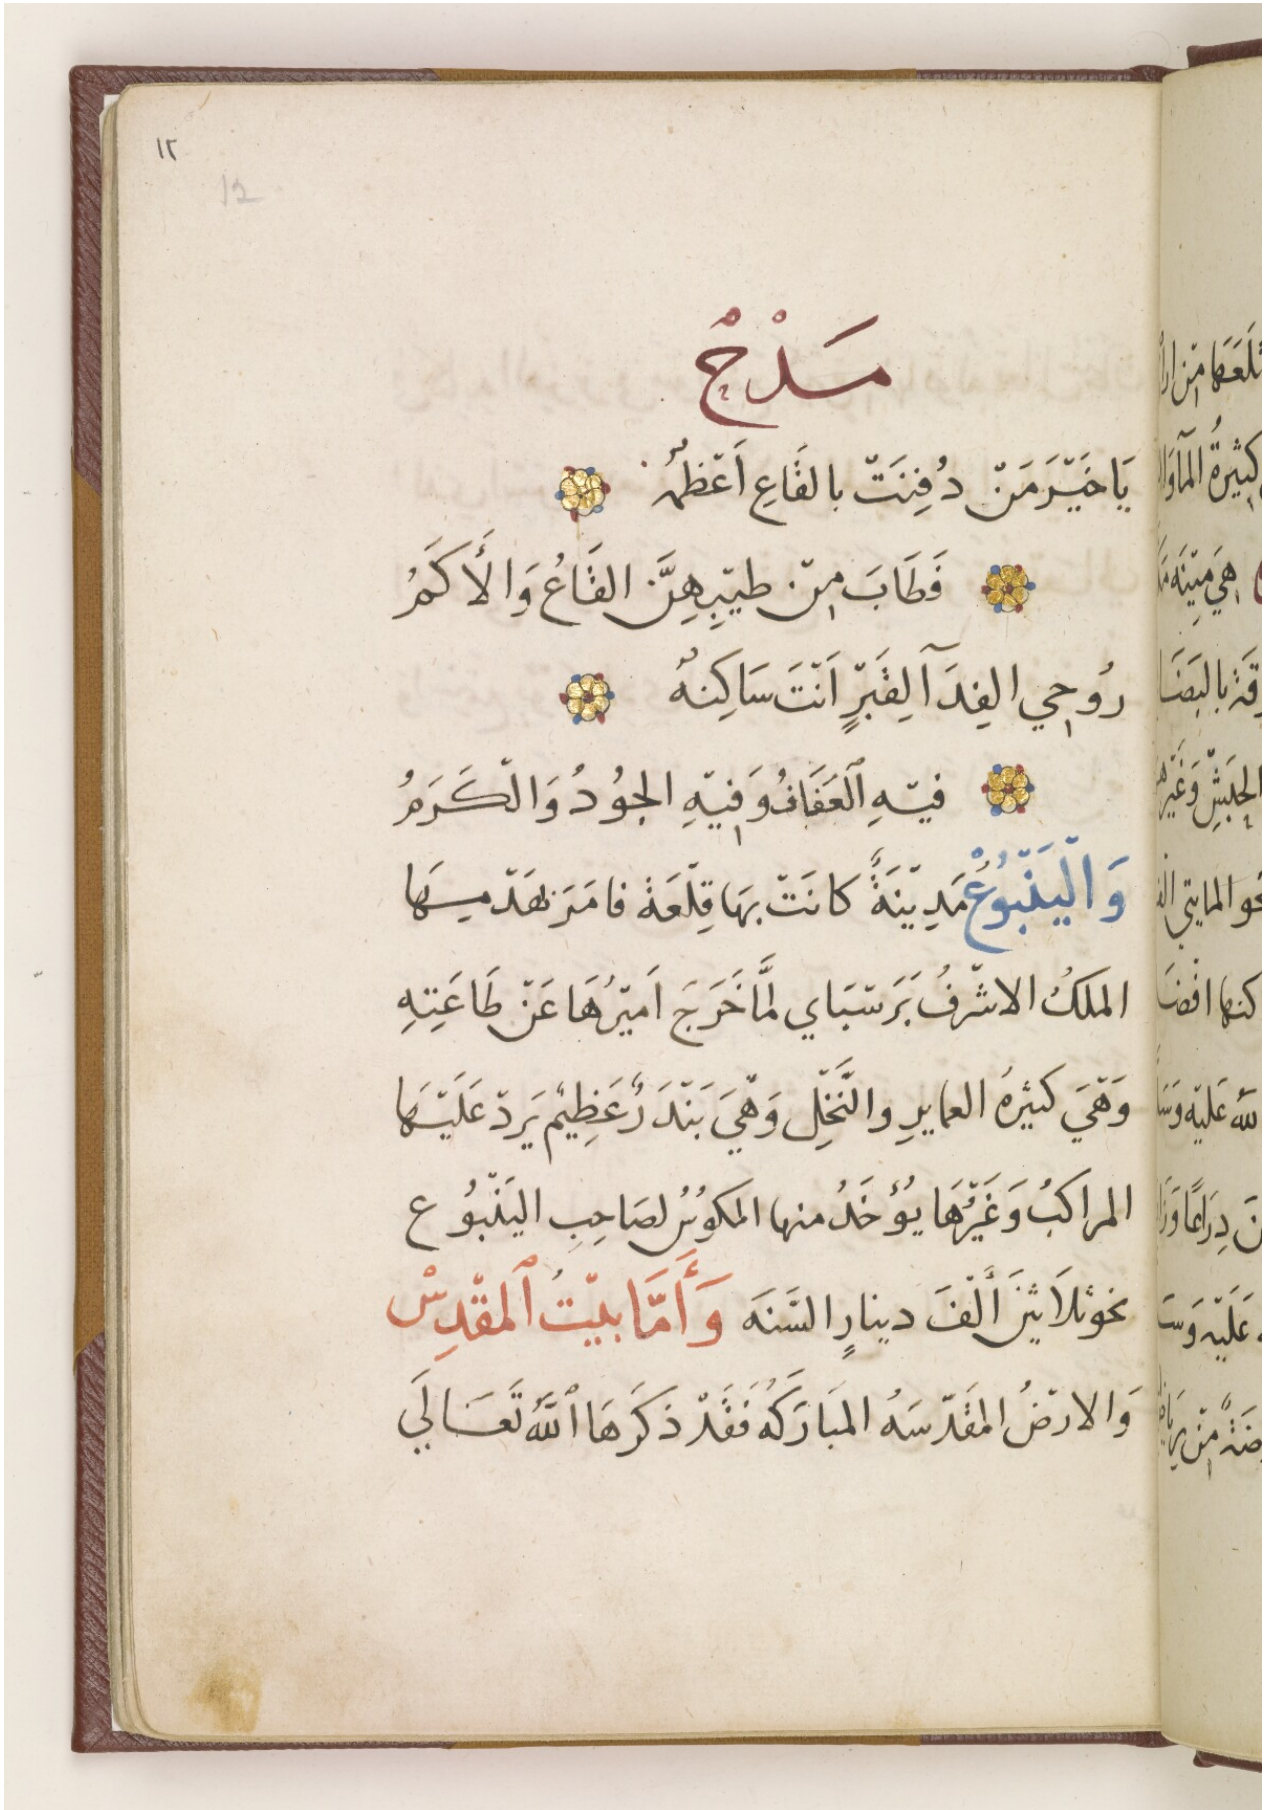 ١٢
12
مَدْحٌ
يَا خَيْرَ مَنْ دُفِنَتْ بالقَاعِ اَعْظمُهُ
فَطَابَ مِنْ طيبِهِنَّ القَاعُ وَالأَكَمُ
رُوحِي الفِدَآ لِقَبْرٍ اَنْتَ سَاكِنهُ
فيْهِ ٱلعَفَافُ وَفِيْهِ الجُوُدُ وَالْكَرَمُ
وَالْيَنْبُوُعُ مَدِيْنَةٌ كانَتْ بهَا قِلْعَة فامَرَ بهَدْمِهَا
الملكُ الاشْرفُ بَرَسْبَاي لمَّا خَرَجَ اَميْرُهَا عَنْ طَاعَتِهِ
وَهْيَ كثيرةُ العمايرِ والنَّخْلِ وَهْيَ بَنْدَرٌ عَظِيمٌ يَردْ عَلَيْهَا
المراكبُ وَغَيْرُهَا يُؤخَدُ منها المكوُسُ لصَاحِبِ اليَنْبُوُع
نحو ثلاَثينَ أَلْفَ دينارٍ السَّنَه وَأَمَّا بيْتُ ٱلمقْدِسْ
وَالارْضُ المقَدّسَهُ المبَارَكَهُ فَقَدْ ذكَرَهَا ٱللَّهُ تَعَالَي